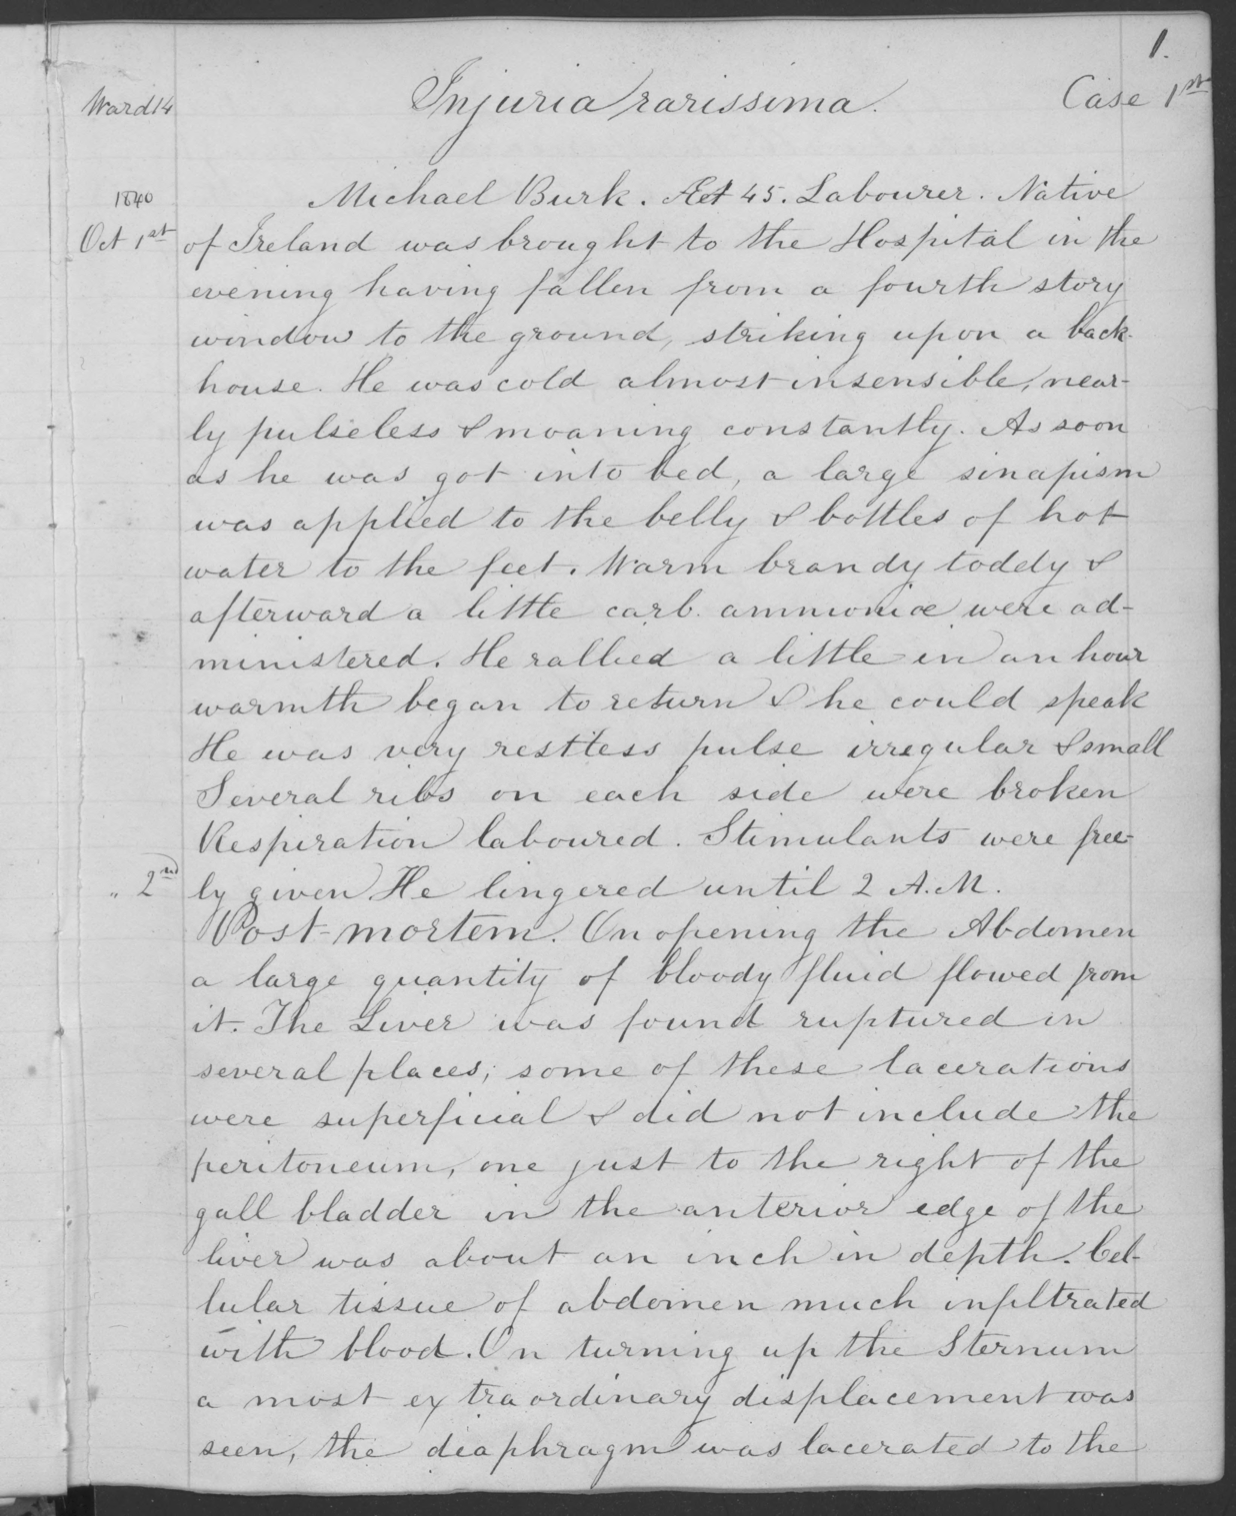 1.
Ward 14 Injuria rarissima. Case 1st
Michael Burk. Aet 45. Labourer. Native
1840
Oct 1st of Ireland was brought to the Hospital in the
evening having fallen from a fourth story
window to the ground, striking upon a back
house. He was cold almost insensible, near-
ly pulseless & moaning constantly. As soon
as he was got into bed, a large sinapism
was applied to the belly & bottles of hot
water to the feet. Warm brandy toddy &
afterward a little carb. ammoniæ were ad-
ministered. He rallied a little in an hour
warmth began to return & he could speak
He was very restless pulse irregular & small
Several ribs on each side were broken
Respiration laboured. Stimulants were free-
" 2nd ly given He lingered until 2 A.M.
Post-mortem. On opening the Abdomen
a large quantity of bloody fluid flowed from
it. The Liver was found ruptured in
several places; some of these lacerations
were superficial & did not include the
peritoneum, one just to the right of the
gall bladder in the anterior edge of the
liver was about an inch in depth. Cel-
lular tissue of abdomen much infiltrated
with blood. On turning up the Sternum
a most extraordinary displacement was
seen, the diaphragm was lacerated to the